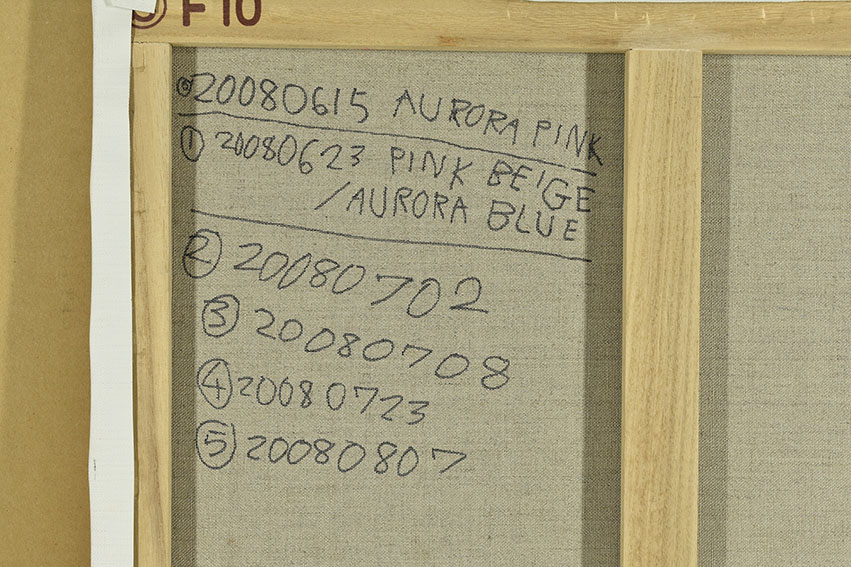 F10
⓪20080615 AURORA PINK
① 20080623 PINK BEIGE
/AURORA BLUE
② 20080702
③ 20080708
④ 20080723
⑤ 20080807